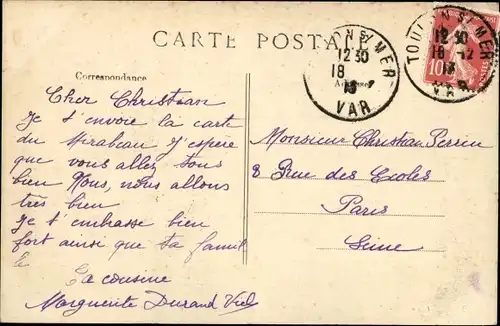 CARTE POSTALE
Correspondance
TOULON S/ MER
12 30
18 -12
13
VAR
10
Cher Christian
Je t'envoie la carte
du Mirabeau J'espère
que vous allez tous
bien Nous, nous allons
très bien
Je t'embrasse bien
fort ainsi que ta famil
le
Ta cousine
Marguerite Durand Viel
Monsieur Christian Perrin
8 Rue des Ecoles
Paris
Seine